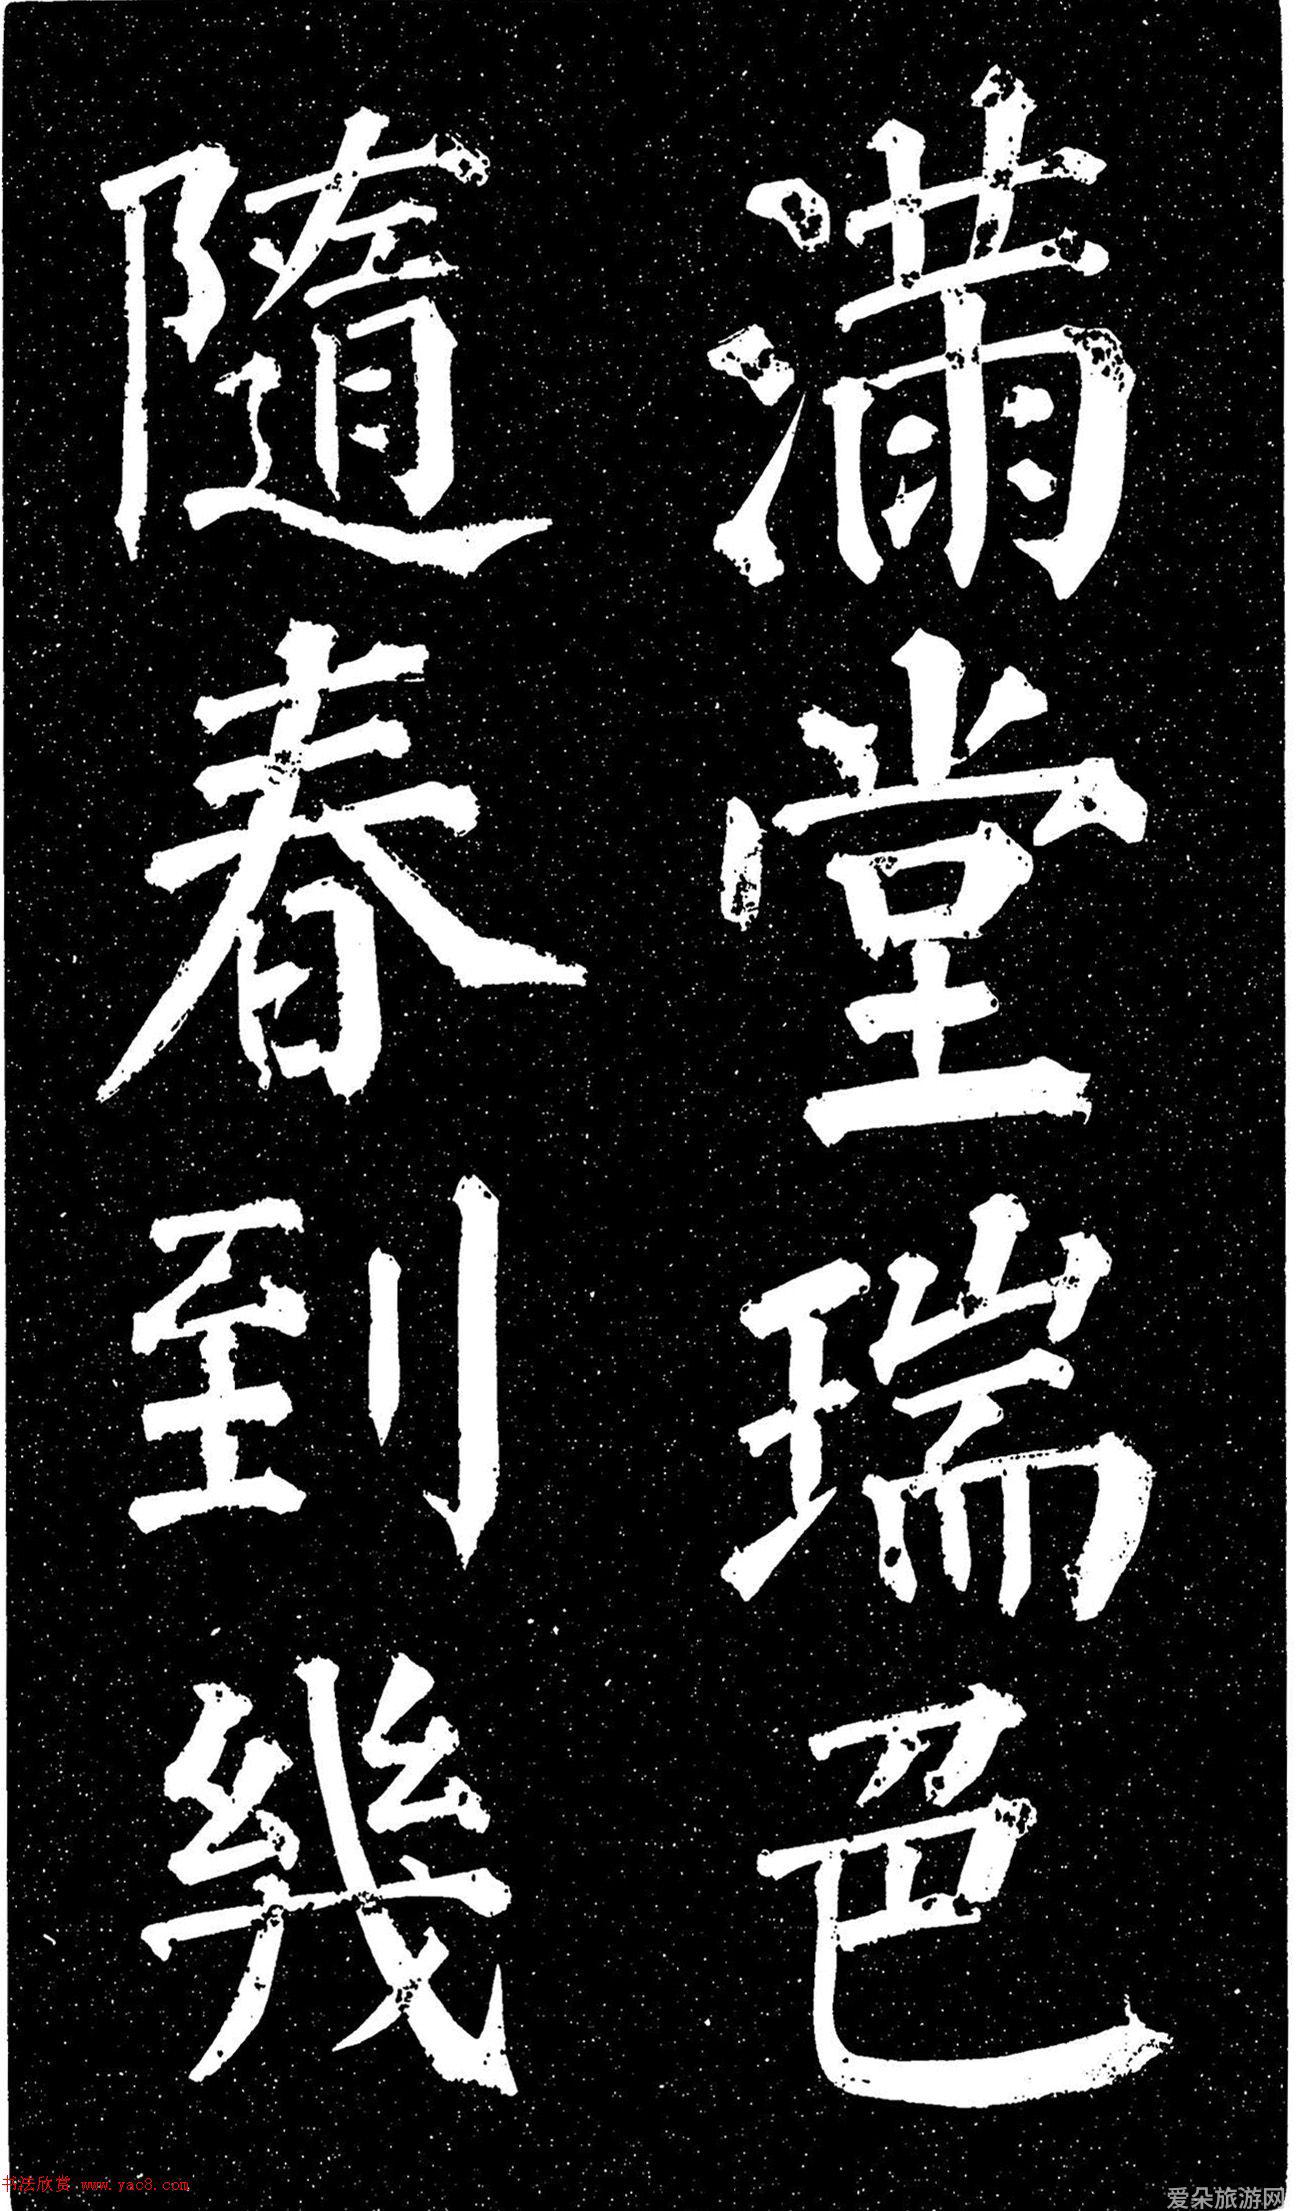 滿堂瑞色
隨春到幾
书法欣赏 www.yac8.com
爱朵旅游网